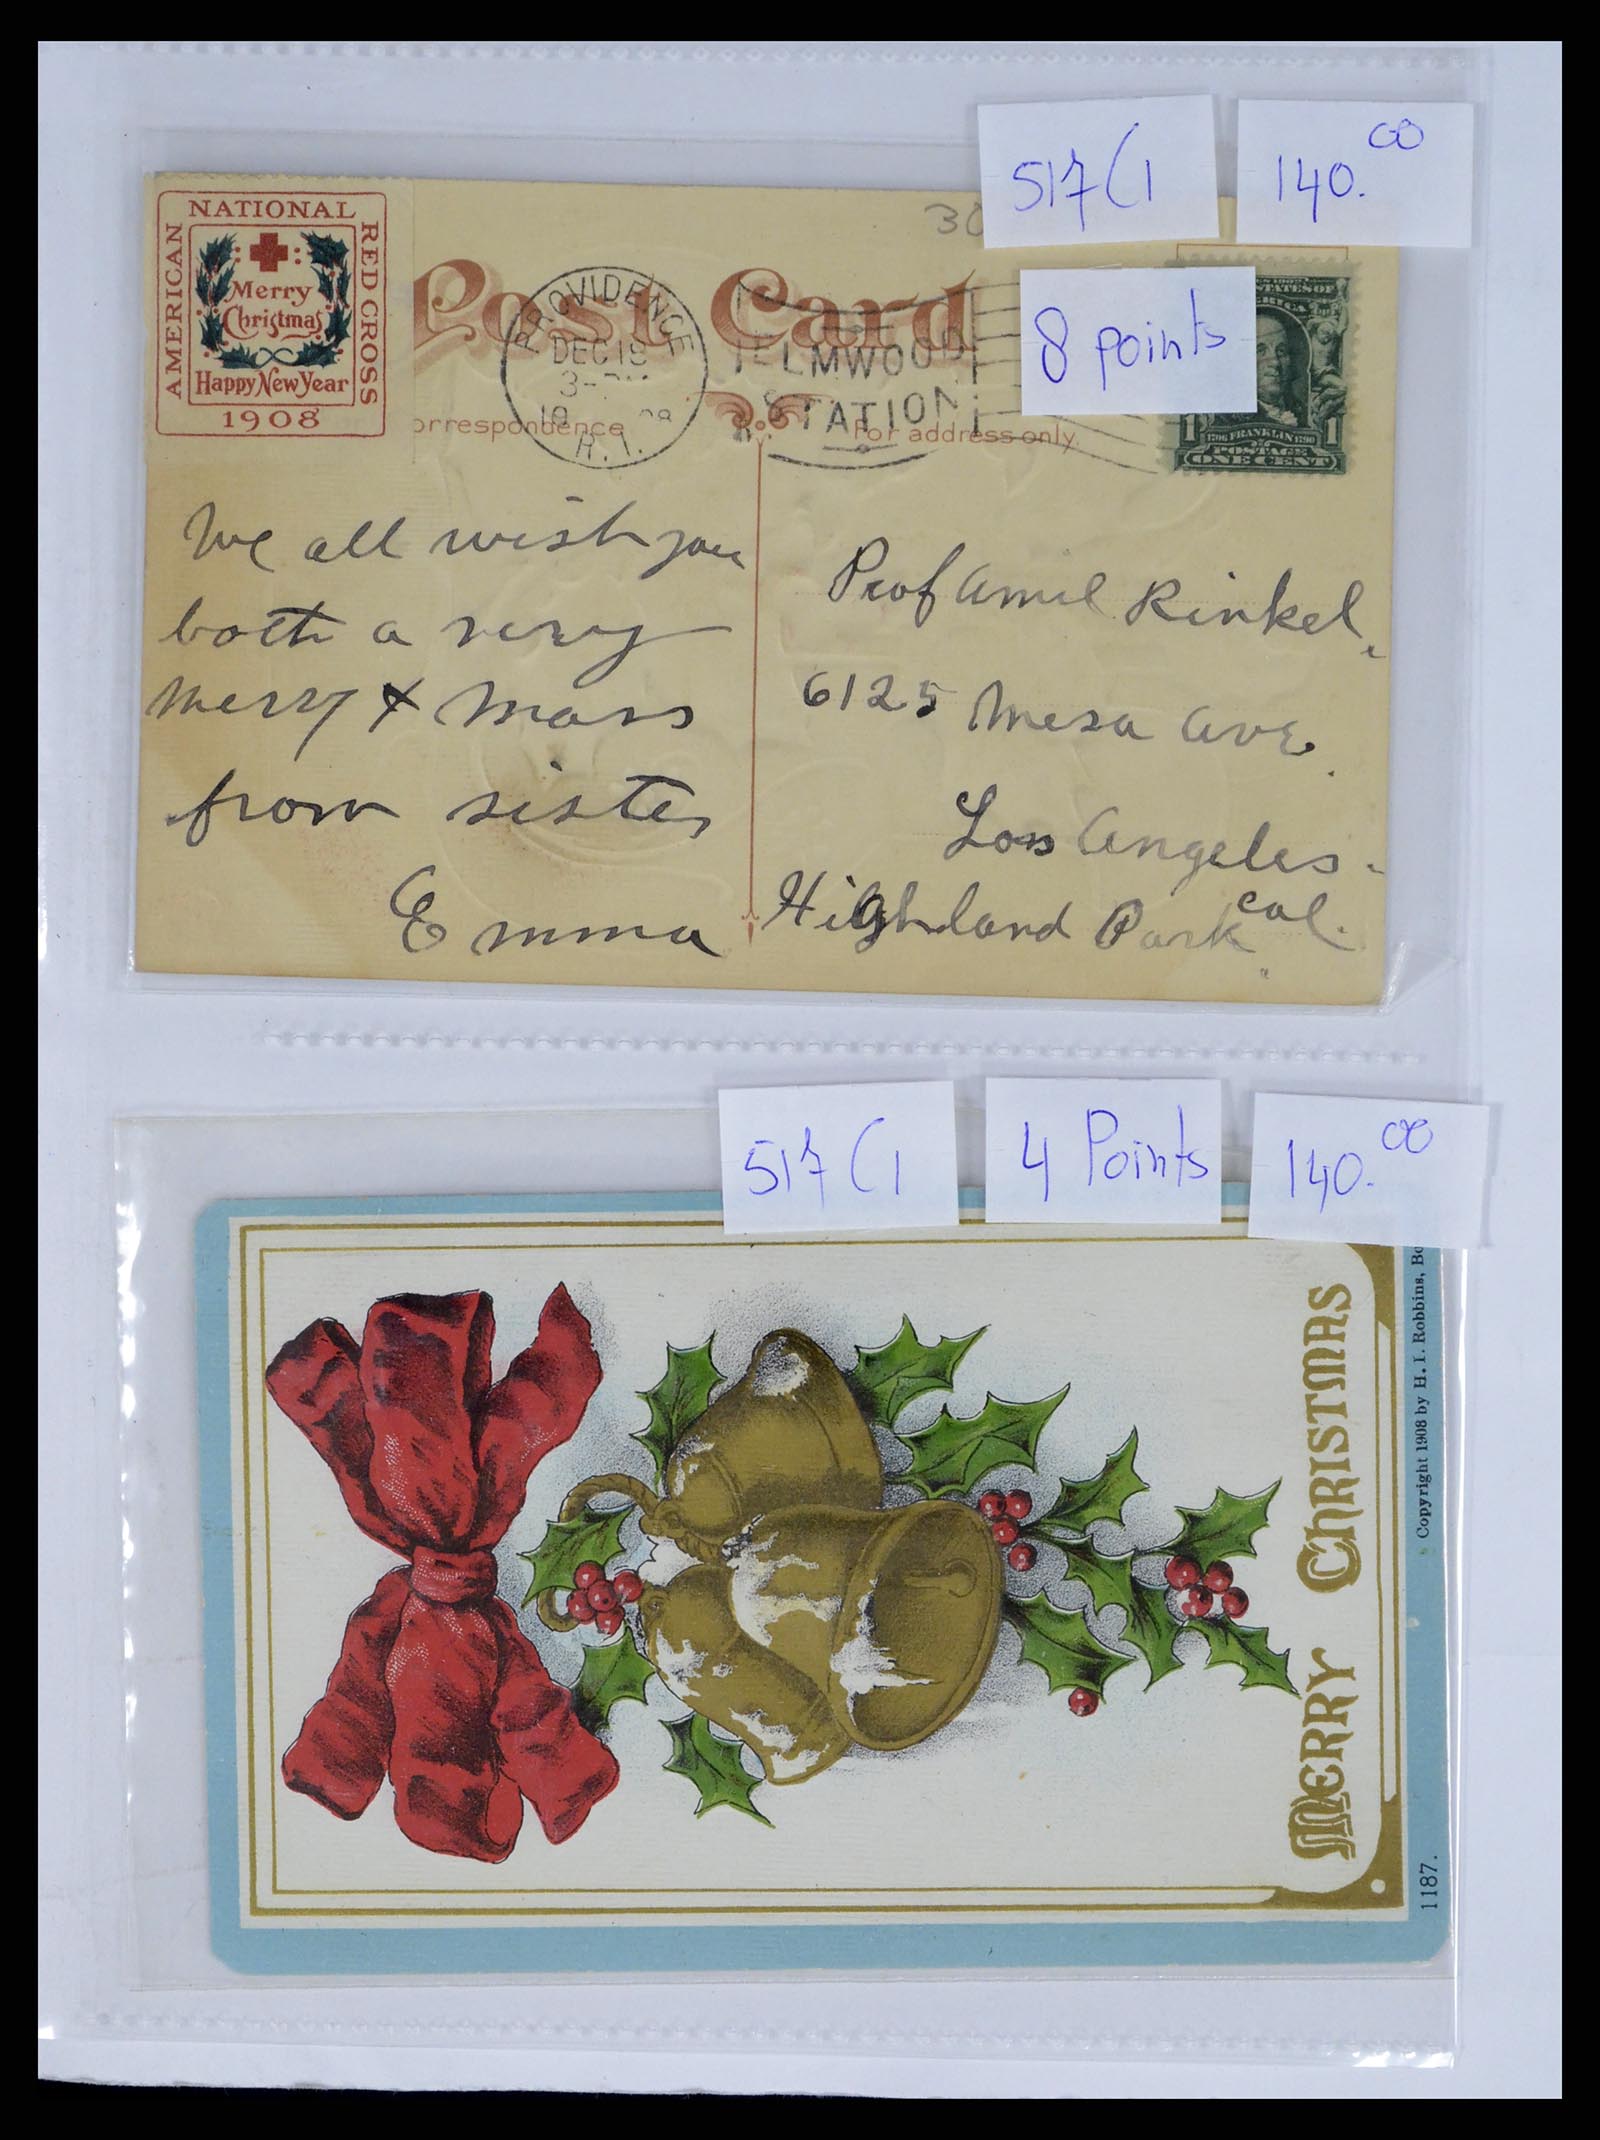 517 C1
140.00
30
8 points
AMERICAN
NATIONAL
RED CROSS
Merry
Christmas
Happy New Year
1908
Post Card
PROVIDENCE
DEC 18
3-
19 08
R. I.
ELMWOOD
STATION
orrespondence
For address only.
STATES OF
1706 FRANKLIN 1790
1 1
POSTAGE
ONE CENT
We all wish you
both a very
Merry X mass
from sister
Emma
Prof Amil Rinkel.
6125 Mesa Ave.
Los Angeles.
Highland Park Cal.
517 C1
4 Points
140.00
MERRY CHRISTMAS
Copyright 1908 by H. I. Robbins, Bo
1187.